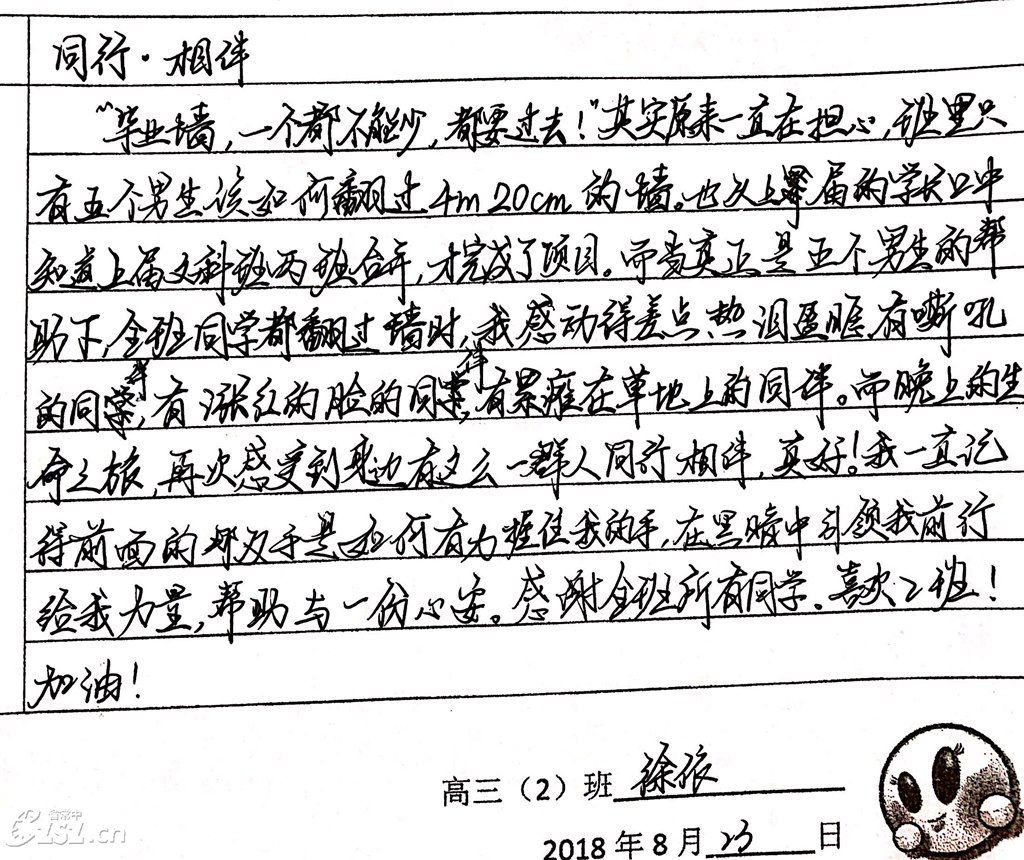 同行·相伴
“毕业墙，一个都不能少，都要过去！”其实原来一直在担心，班里只
有五个男生该如何翻过4m20cm的墙。也从上届的学长口中
知道上届文科班两班合并，才完成了项目。而当真正是五个男生的帮
助下，全班同学都翻过墙时，我感动得差点热泪盈眶，有嘶吼
的同伴，有涨红的脸的同伴，有累瘫在草地上的同伴。而晚上的生
命之旅，再次感受到身边有这么一群人同行相伴，真好！我一直记
得前面的那双手是如何有力握住我的手，在黑暗中引领我前行
给我力量，帮助与一份心安。感谢全班所有同学。喜欢2班！
加油！
高三（2）班 徐依
2018年8月23日
ZSZ.cn